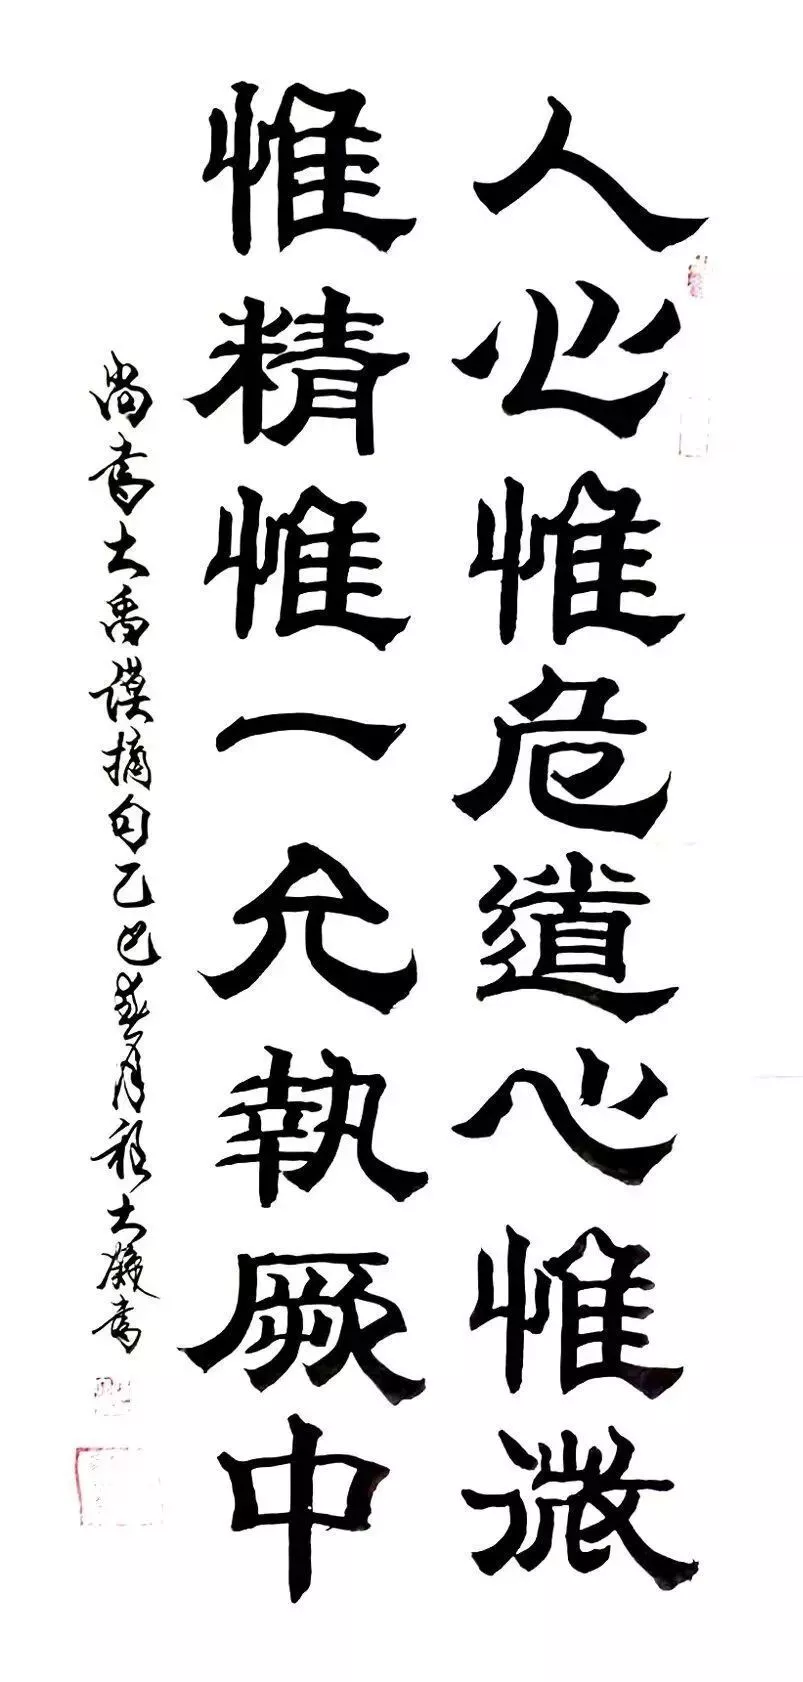 人心惟危道心惟微
惟精惟一允執厥中
尚書大禹謨摘句乙巳春月程大斌書